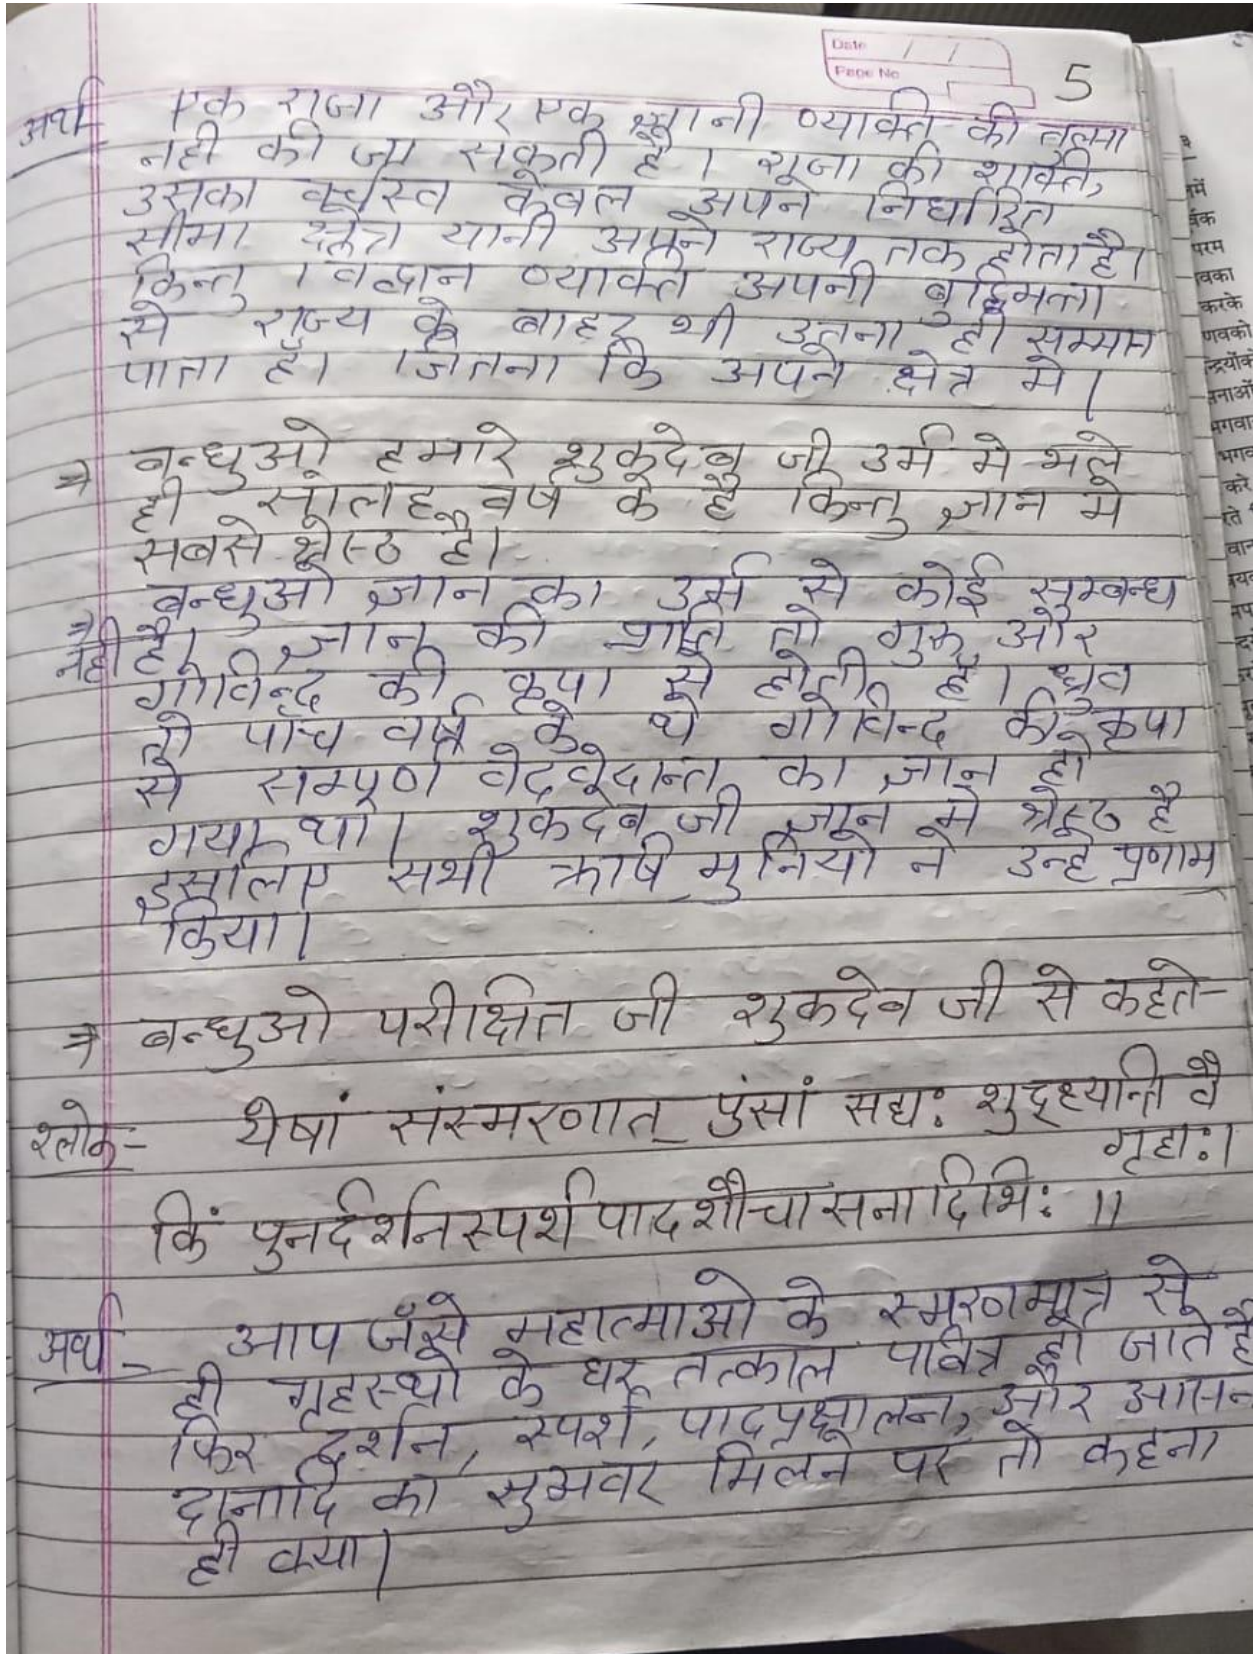 Date / /
Page No
5
अर्थ- एक राजा और एक ज्ञानी व्यक्ति की तुलना
नही की जा सकती है। राजा की शक्ति,
उसका वर्चस्व केवल अपने निर्धारित
सीमा क्षेत्र यानी अपने राज्य तक होता है।
किन्तु विद्वान व्यक्ति अपनी बुद्धिमत्ता
से राज्य के बाहर भी उतना ही सम्मान
पाता है। जितना कि अपने क्षेत्र मे।
⇒ बन्धुओ हमारे शुकदेव जी उर्म मे भले
ही सोलह वर्ष के है किन्तु ज्ञान मे
सबसे श्रेस्ठ है।
⇒ बन्धुओ ज्ञान का उर्म से कोई सम्बन्ध
नही है। ज्ञान की प्राप्ति तो गुरु और
गोविन्द की कृपा से होती है। ध्रुव
तो पाँच वर्ष के थे गोविन्द की कृपा
से सम्पूर्ण वेदवेदान्त का ज्ञान हो
गया था। शुकदेव जी ज्ञान मे श्रेस्ठ है
इसलिए सभी ऋषि मुनियो ने उन्हे प्रणाम
किया।
⇒ बन्धुओ परीक्षित जी शुकदेव जी से कहते-
श्लोक- येषां संस्मरणात् पुंसां सद्यः शुद्ध्यन्ति वै
गृहाः।
किं पुनर्दर्शनस्पर्शपादशौचासनादिभिः ॥
अर्थ- आप जैसे महात्माओ के स्मरणमात्र से
ही गृहस्थो के घर तत्काल पवित्र हो जाते है
फिर दर्शन, स्पर्श, पादप्रक्षालन, और आसन
दानादि का मिलने पर तो कहना
ही क्या।